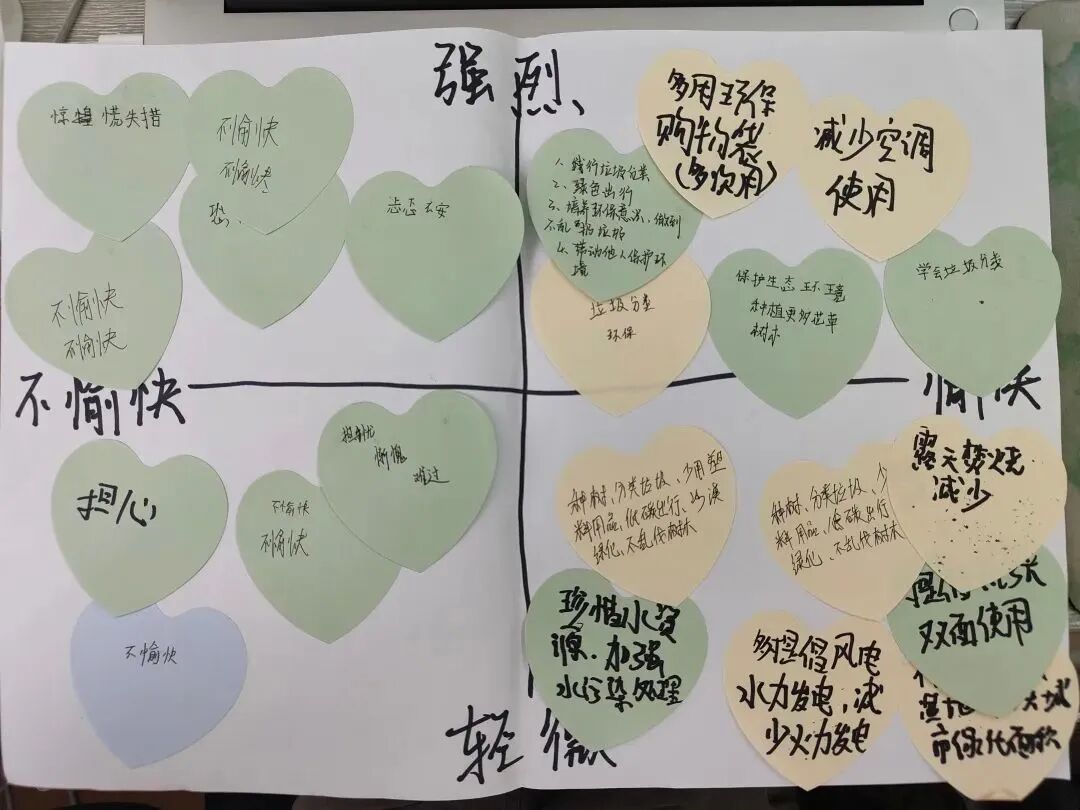 强烈
惊惶慌失措
不愉快
不愉快
恐、
忐忑不安
不愉快
不愉快
多用环保
购物袋
(多次用)
减少空调
使用
1、践行垃圾分类
2、绿色出行
3、培养环保意识、做到
不乱扔垃圾
4、带动他人保护环
境
垃圾分类
环保
保护生态环境
种植更多花草
树木
学会垃圾分类
不愉快
愉快
担心
不愉快
不愉快
担忧
惭愧
难过
不愉快
种树、分类垃圾、少用塑
料用品、低碳出行、沙漠
绿化、不乱伐树木
种树、分类垃圾、少
料用品、低碳出行
绿化、不乱伐树木
露天焚烧
减少
珍惜水资
源、加强
水污染处理
多提倡风电
水力发电,减
少火力发电
双面使用
轻微